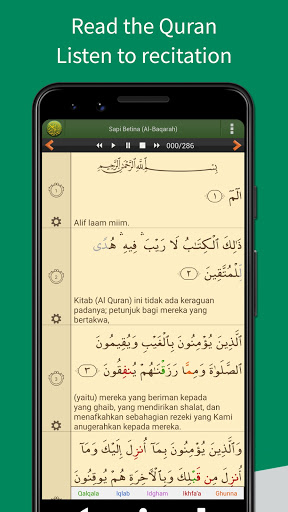 Read the Quran
Listen to recitation
Sapi Betina (Al-Baqarah)
000/286
بِسْمِ ٱللَّهِ ٱلرَّحْمَٰنِ ٱلرَّحِيمِ
١
الٓمٓ ﴿١﴾
Alif laam miim.
ذَٰلِكَ ٱلْكِتَٰبُ لَا رَيْبَ ۛ فِيهِ ۛ هُدًى
٢
لِّلْمُتَّقِينَ ﴿٢﴾
Kitab (Al Quran) ini tidak ada keraguan
padanya; petunjuk bagi mereka yang
bertakwa,
ٱلَّذِينَ يُؤْمِنُونَ بِٱلْغَيْبِ وَيُقِيمُونَ
٣
ٱلصَّلَوٰةَ وَمِمَّا رَزَقْنَٰهُمْ يُنفِقُونَ ﴿٣﴾
(yaitu) mereka yang beriman kepada
yang ghaib, yang mendirikan shalat, dan
menafkahkan sebahagian rezeki yang Kami
anugerahkan kepada mereka.
وَٱلَّذِينَ يُؤْمِنُونَ بِمَآ أُنزِلَ إِلَيْكَ وَمَآ
أُنزِلَ مِن قَبْلِكَ وَبِٱلْءَاخِرَةِ هُمْ يُوقِنُونَ
Qalqala Iqlab Idgham Ikhfa'a Ghunna